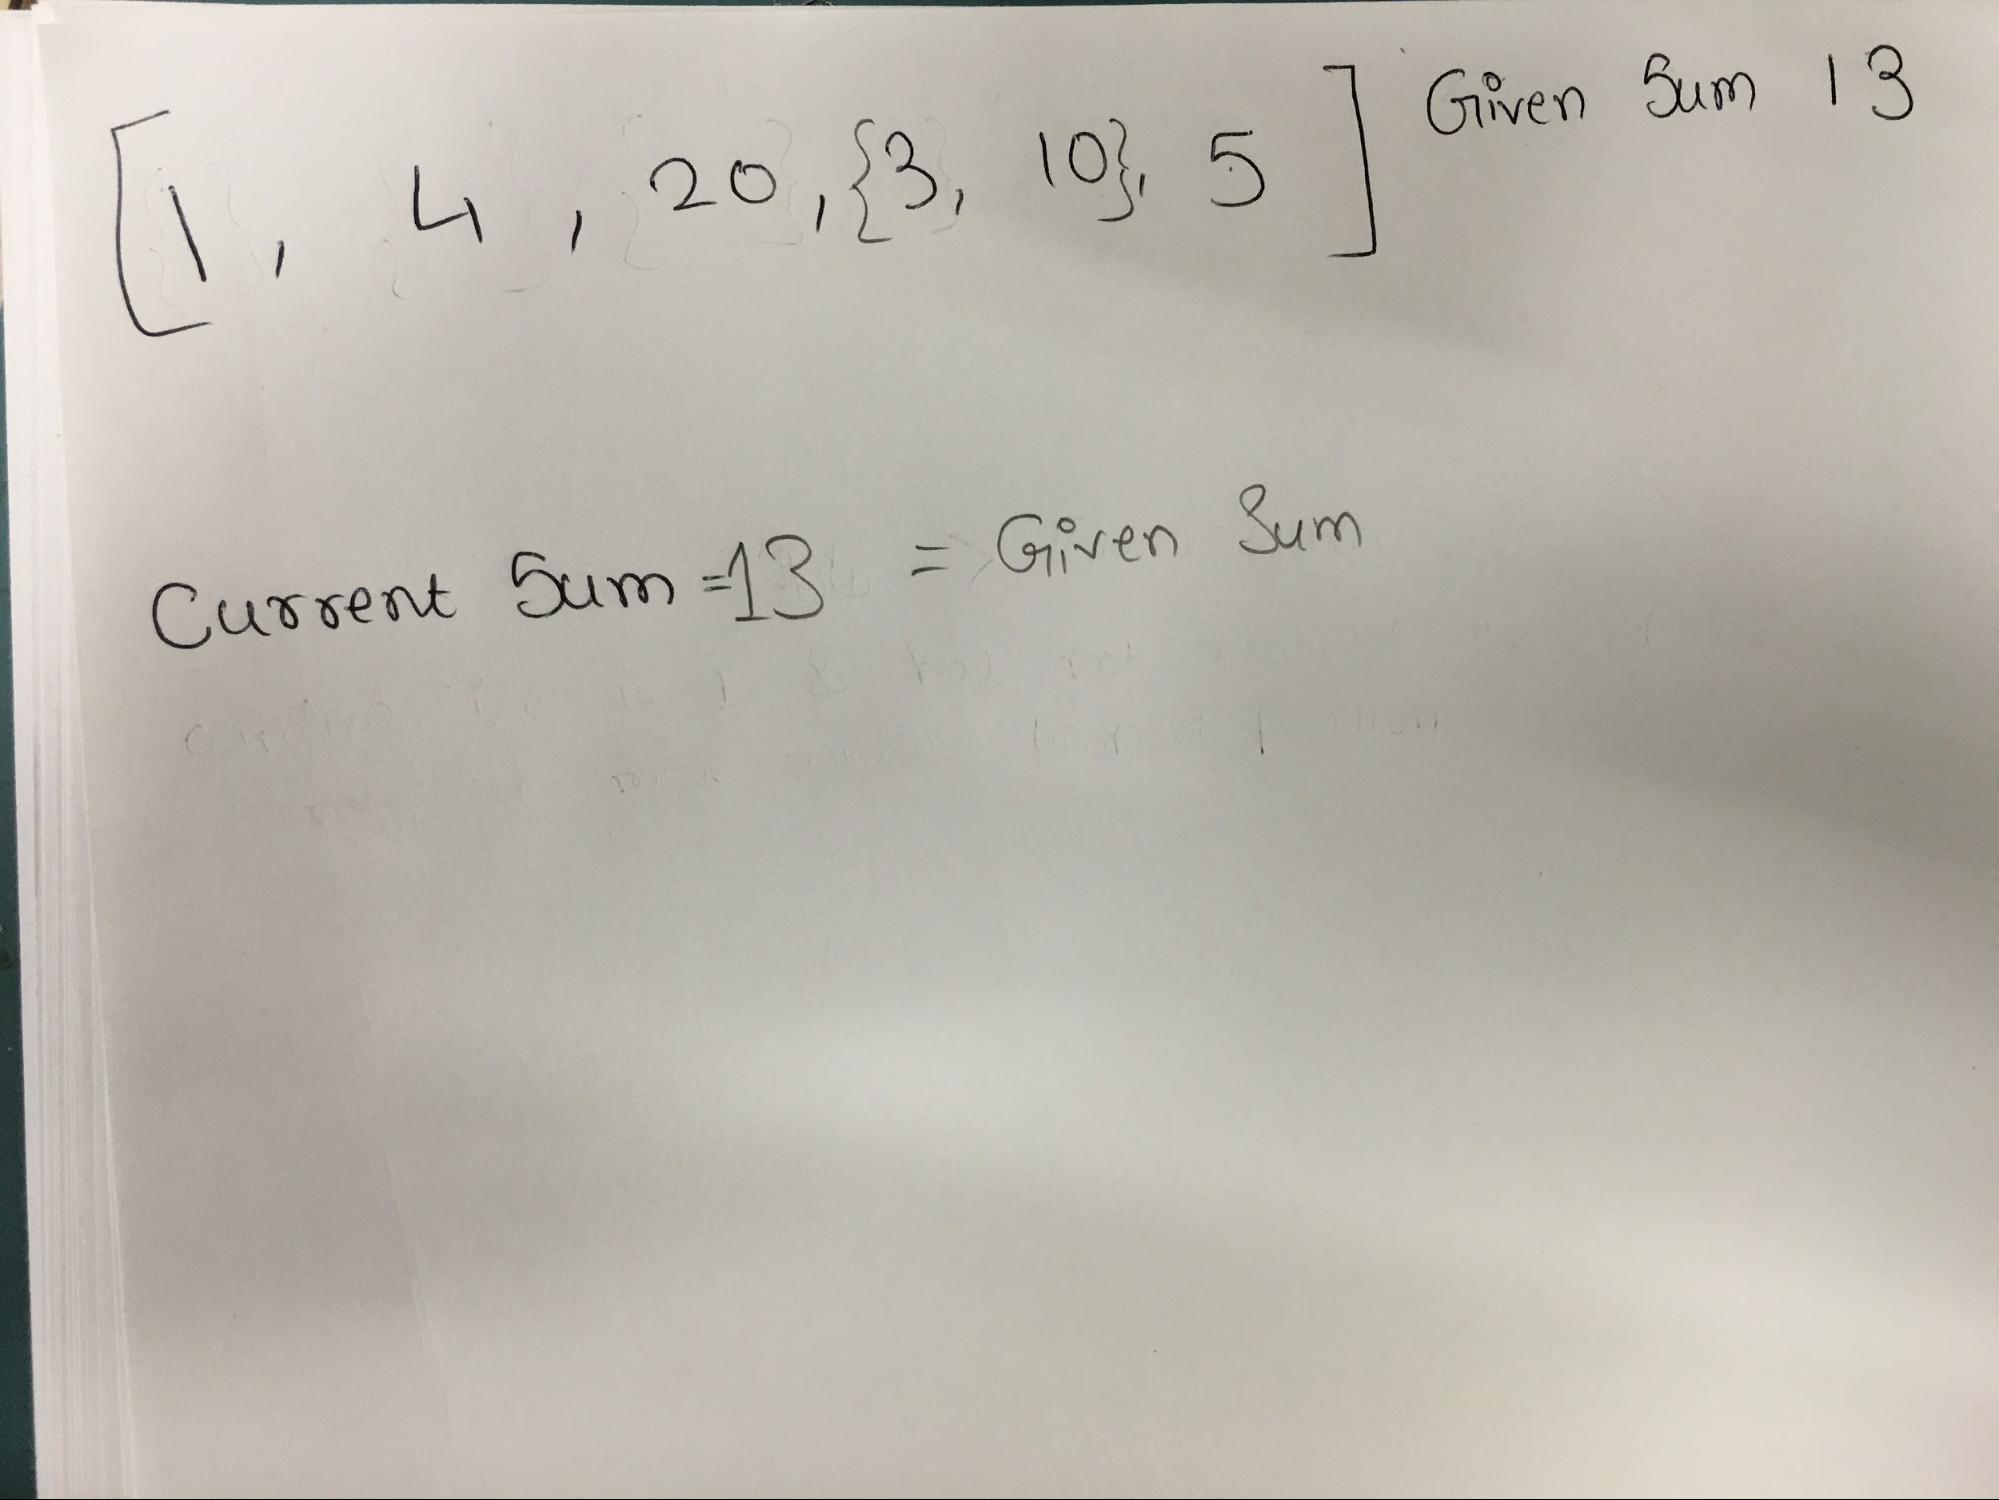 [1, 4, 20, {3, 10}, 5] Given Sum 13
Current Sum =13 = Given Sum